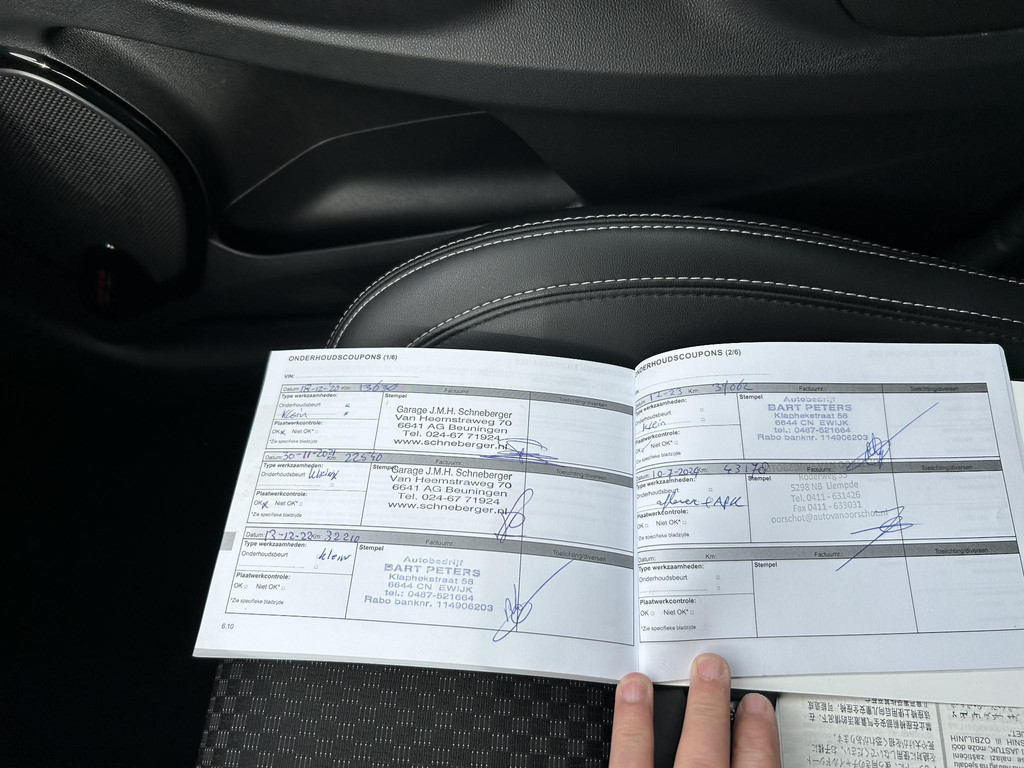 ONDERHOUDSCOUPONS (1/6)
VIN:
Datum: 18-12-20 Km: 13630 Factuurnr.: Toelichting/diversen
Type werkzaamheden:
Onderhoudsbeurt
Klein
Plaatwerkcontrole:
OK Niet OK*
*Zie specifieke bladzijde
Stempel
Garage J.M.H. Schneberger
Van Heemstraweg 70
6641 AG Beuningen
Tel. 024-67 71924
www.schneberger.nl
Datum: 30-11-2021 Km: 22540 Toelichting/diversen
Type werkzaamheden:
Onderhoudsbeurt Klein
Plaatwerkcontrole:
OK Niet OK*
*Zie specifieke bladzijde
Stempel
Garage J.M.H. Schneberger
Van Heemstraweg 70
6641 AG Beuningen
Tel. 024-67 71924
www.schneberger.nl
Datum: 13-12-22 Km: 32210 Factuurnr.: Toelichting/diversen
Type werkzaamheden:
Onderhoudsbeurt klein
Plaatwerkcontrole:
OK Niet OK*
*Zie specifieke bladzijde
Stempel
Autobedrijf
BART PETERS
Klaphekstraat 58
6644 CN EWIJK
tel.: 0487-521664
Rabo banknr. 114906203
6.10
ONDERHOUDSCOUPONS (2/6)
12-23 Km: Factuurnr.: Toelichting/diversen
Type werkzaamheden:
Onderhoudsbeurt
Klein
Plaatwerkcontrole:
OK Niet OK*
*Zie specifieke bladzijde
Stempel
Autobedrijf
BART PETERS
Klaphekstraat 58
6644 CN EWIJK
tel.: 0487-521664
Rabo banknr. 114906203
Datum: 10-7-2024 Km: 43178 Toelichting/diversen
Type werkzaamheden:
Onderhoudsbeurt
aflever + APK
Plaatwerkcontrole:
OK Niet OK*
*Zie specifieke bladzijde
Stempel
5298 NB Liempde
Tel. 0411 - 631426
Fax 0411 - 633031
oorschot@autovanoorschot.nl
Datum: Km: Factuurnr.: Toelichting/diversen
Type werkzaamheden:
Onderhoudsbeurt
Plaatwerkcontrole:
OK Niet OK*
*Zie specifieke bladzijde
Stempel